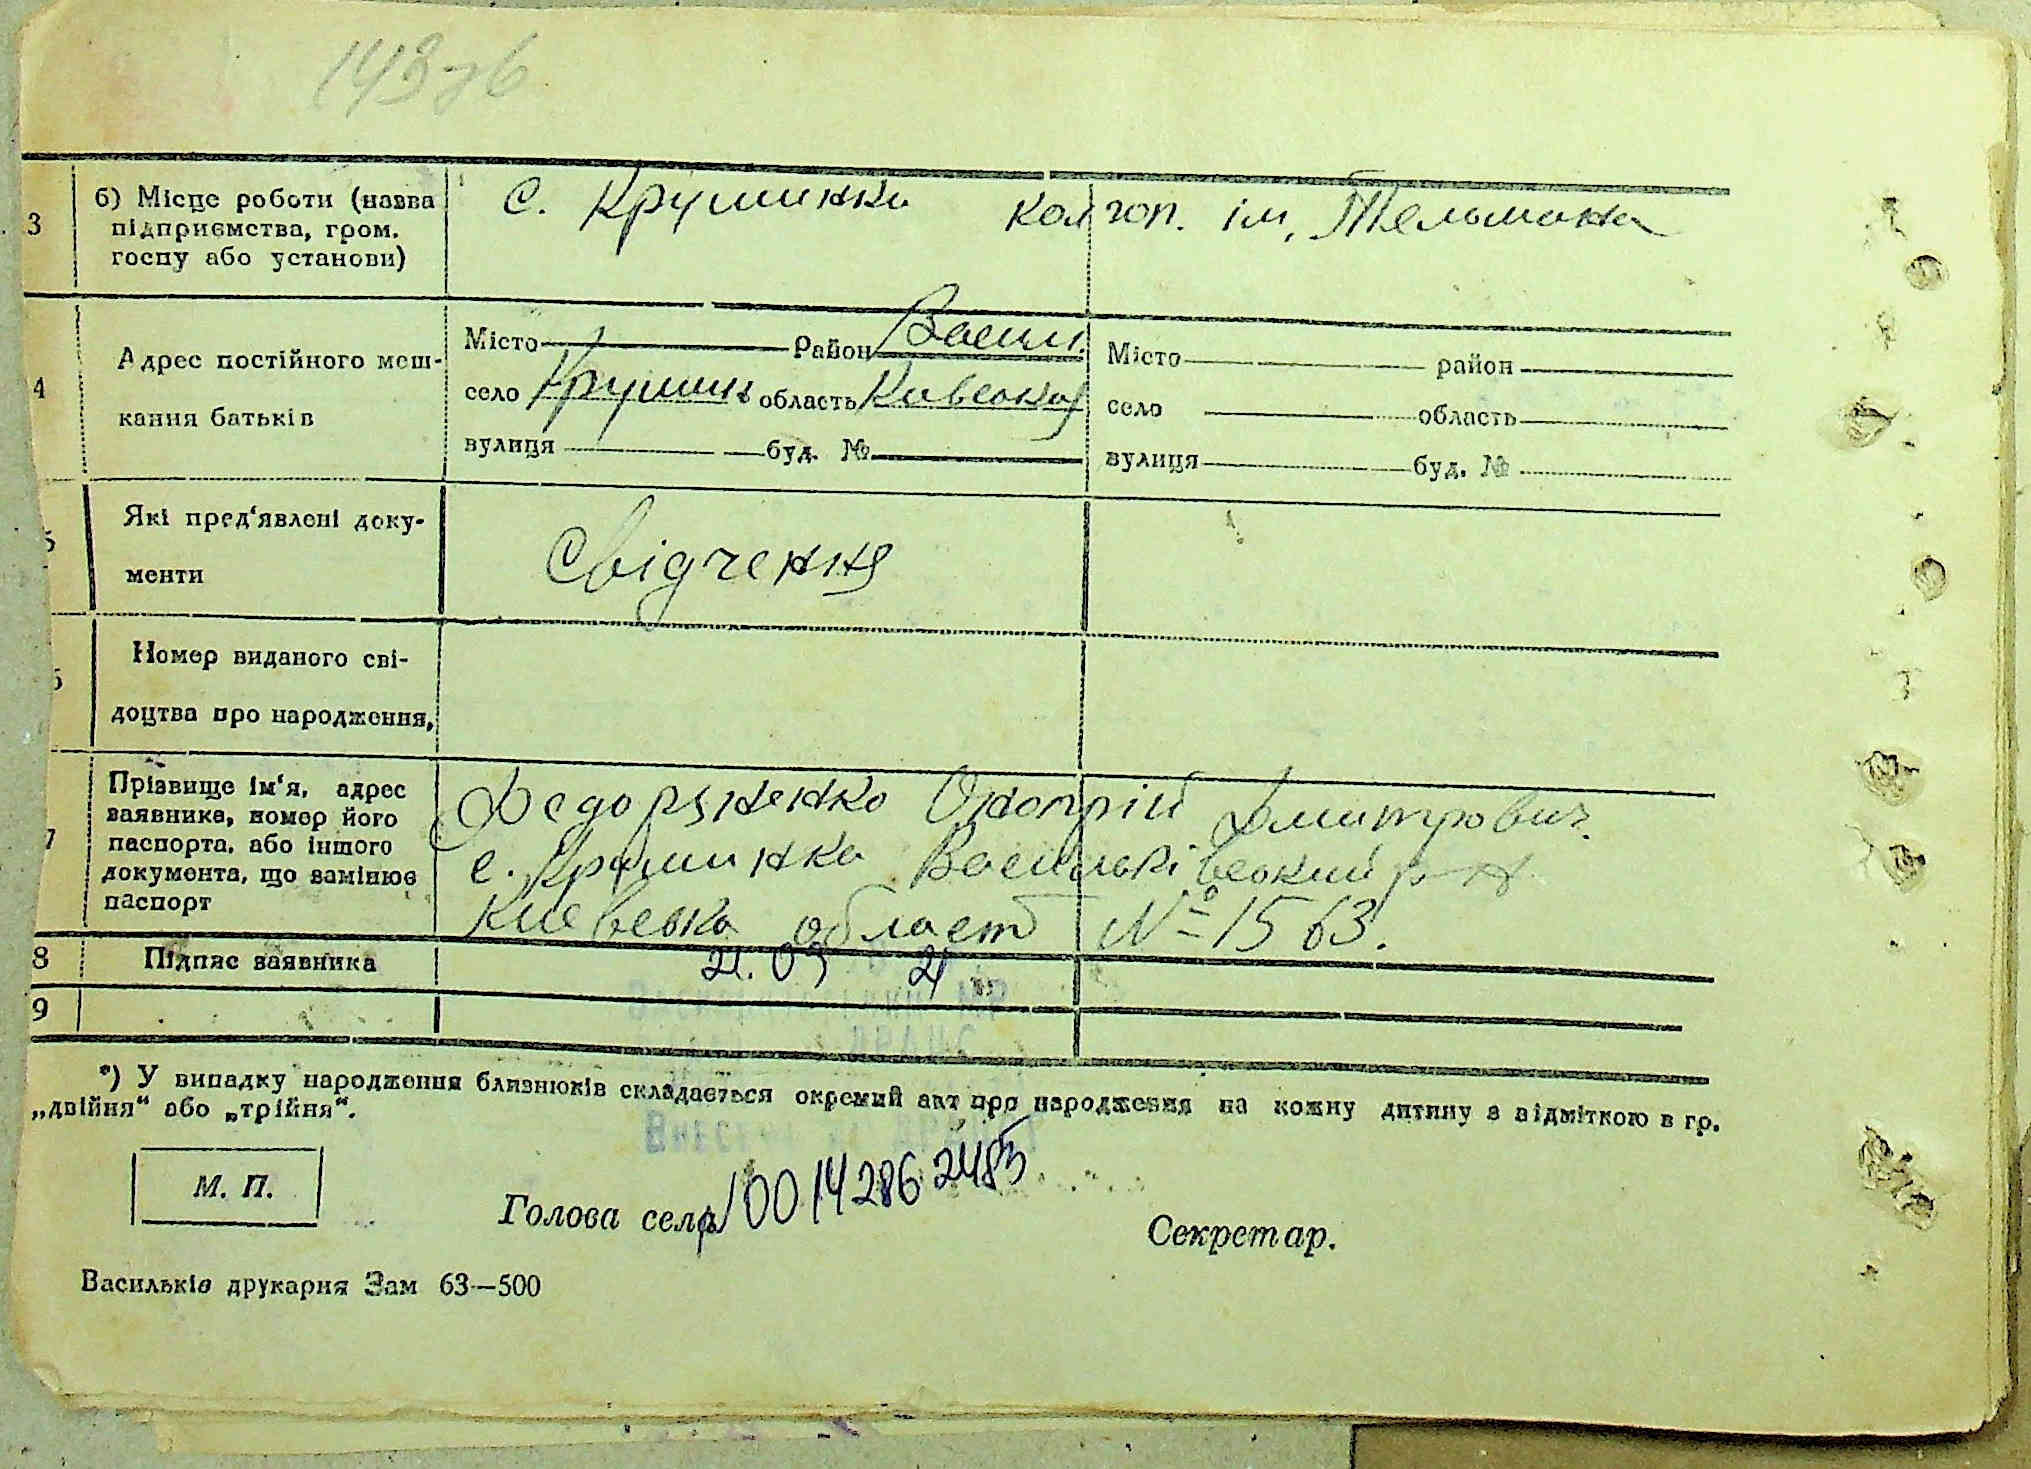 143 зв
3 б) Місце роботи (назва підприємства, гром. госпу або установи) с. Крушинка колгосп. ім. Тельмана
4 Адрес постійного меш-
кання батьків
Місто Район Васил.
село Крушин область Київська
вулиця буд. №
Місто район
село область
вулиця буд. №
5 Які пред'явлені доку-
менти Свідчення
6 Номер виданого сві-
доцтва про народження,
7 Прізвище ім'я, адрес
заявника, номер його
паспорта, або іншого
документа, що замінює
паспорт
Федоряненко Дмитрович.
с. Крушинка Васильківський р-н
Киевська област № 1563.
8 Підпис заявника 21.03 21
9
*) У випадку народження близнюків складається окремий акт про народження на кожну дитину з відміткою в гр.
„двійня“ або „трійня“.
Внести
М. П.
Голова села 00142862485
Секретар.
Васильків друкарня Зам 63—500